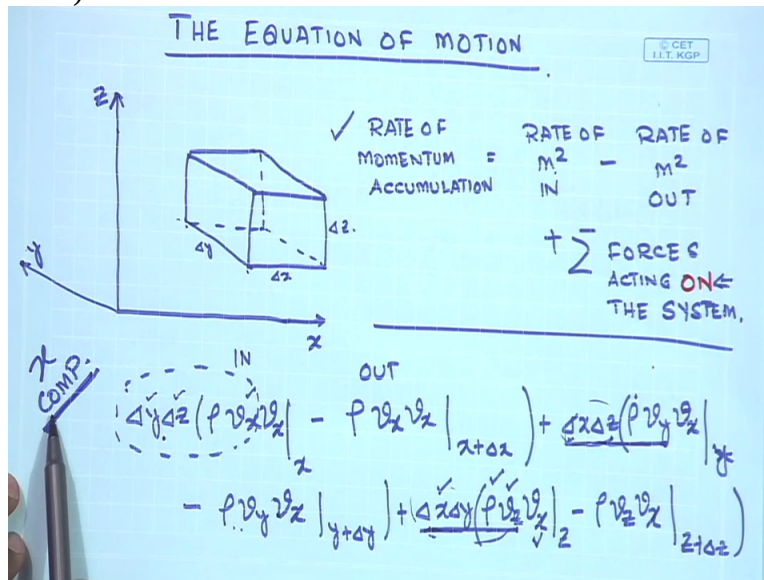 THE EQUATION OF MOTION
© CET
I.I.T. KGP
z
y
x
Δy
Δx
Δz.
✓ RATE OF MOMENTUM ACCUMULATION = RATE OF m² IN - RATE OF m² OUT
+ Σ FORCES
ACTING ON ←
THE SYSTEM.
x COMP.
IN OUT
Δy Δz (ρ v_x v_x |_x - ρ v_x v_x |_{x+Δx}) + Δx Δz (ρ v_y v_x |_y
- ρ v_y v_x |_{y+Δy}) + (Δx Δy (ρ v_z v_x |_z - ρ v_z v_x |_{z+Δz})